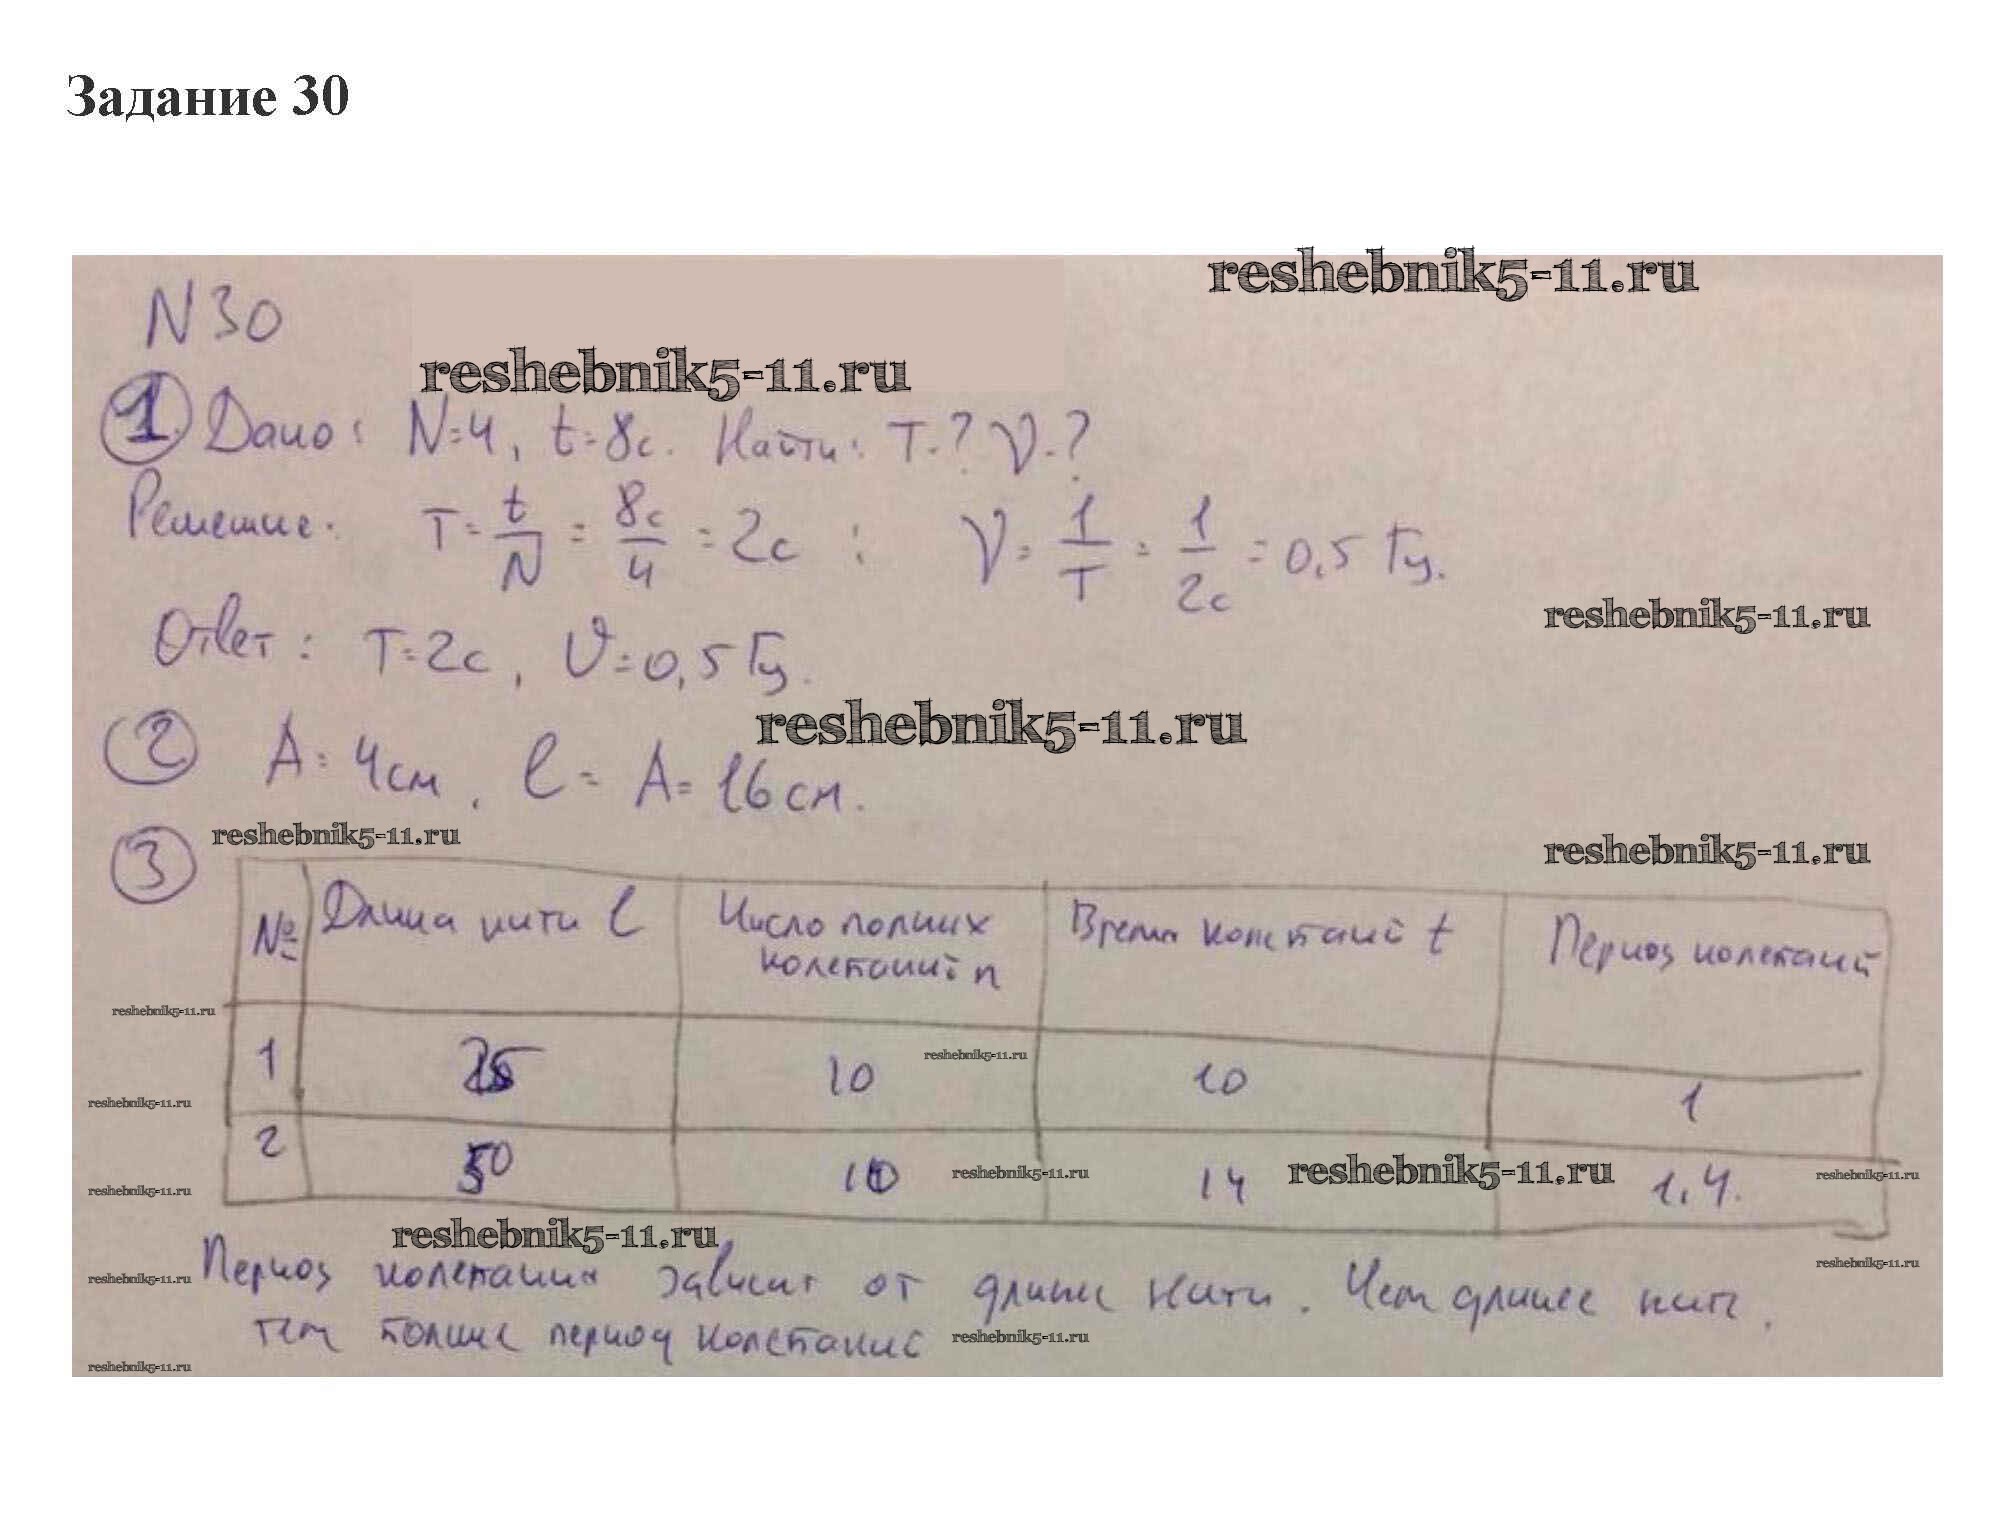 Задание 30
reshebnik5-11.ru
N30
reshebnik5-11.ru
1. Дано: N=4, t=8с. Найти: T-? ν-?
Решение: T = t/N = 8с/4 = 2с ; ν = 1/T = 1/2с = 0,5 Гц.
reshebnik5-11.ru
Ответ: T=2с, ν=0,5Гц.
reshebnik5-11.ru
2 A=4см, l = A=16см.
reshebnik5-11.ru
reshebnik5-11.ru
3
№ Длина нити l Число полных колебаний n Время колебаний t Период колебаний
reshebnik5-11.ru
1 25 10 10 1
reshebnik5-11.ru
reshebnik5-11.ru
2 50 10 14 1,4.
reshebnik5-11.ru
reshebnik5-11.ru
reshebnik5-11.ru
reshebnik5-11.ru
reshebnik5-11.ru
Период колебания зависит от длины нити. Чем длинее нить,
reshebnik5-11.ru
reshebnik5-11.ru
тем больше период колебание
reshebnik5-11.ru
reshebnik5-11.ru